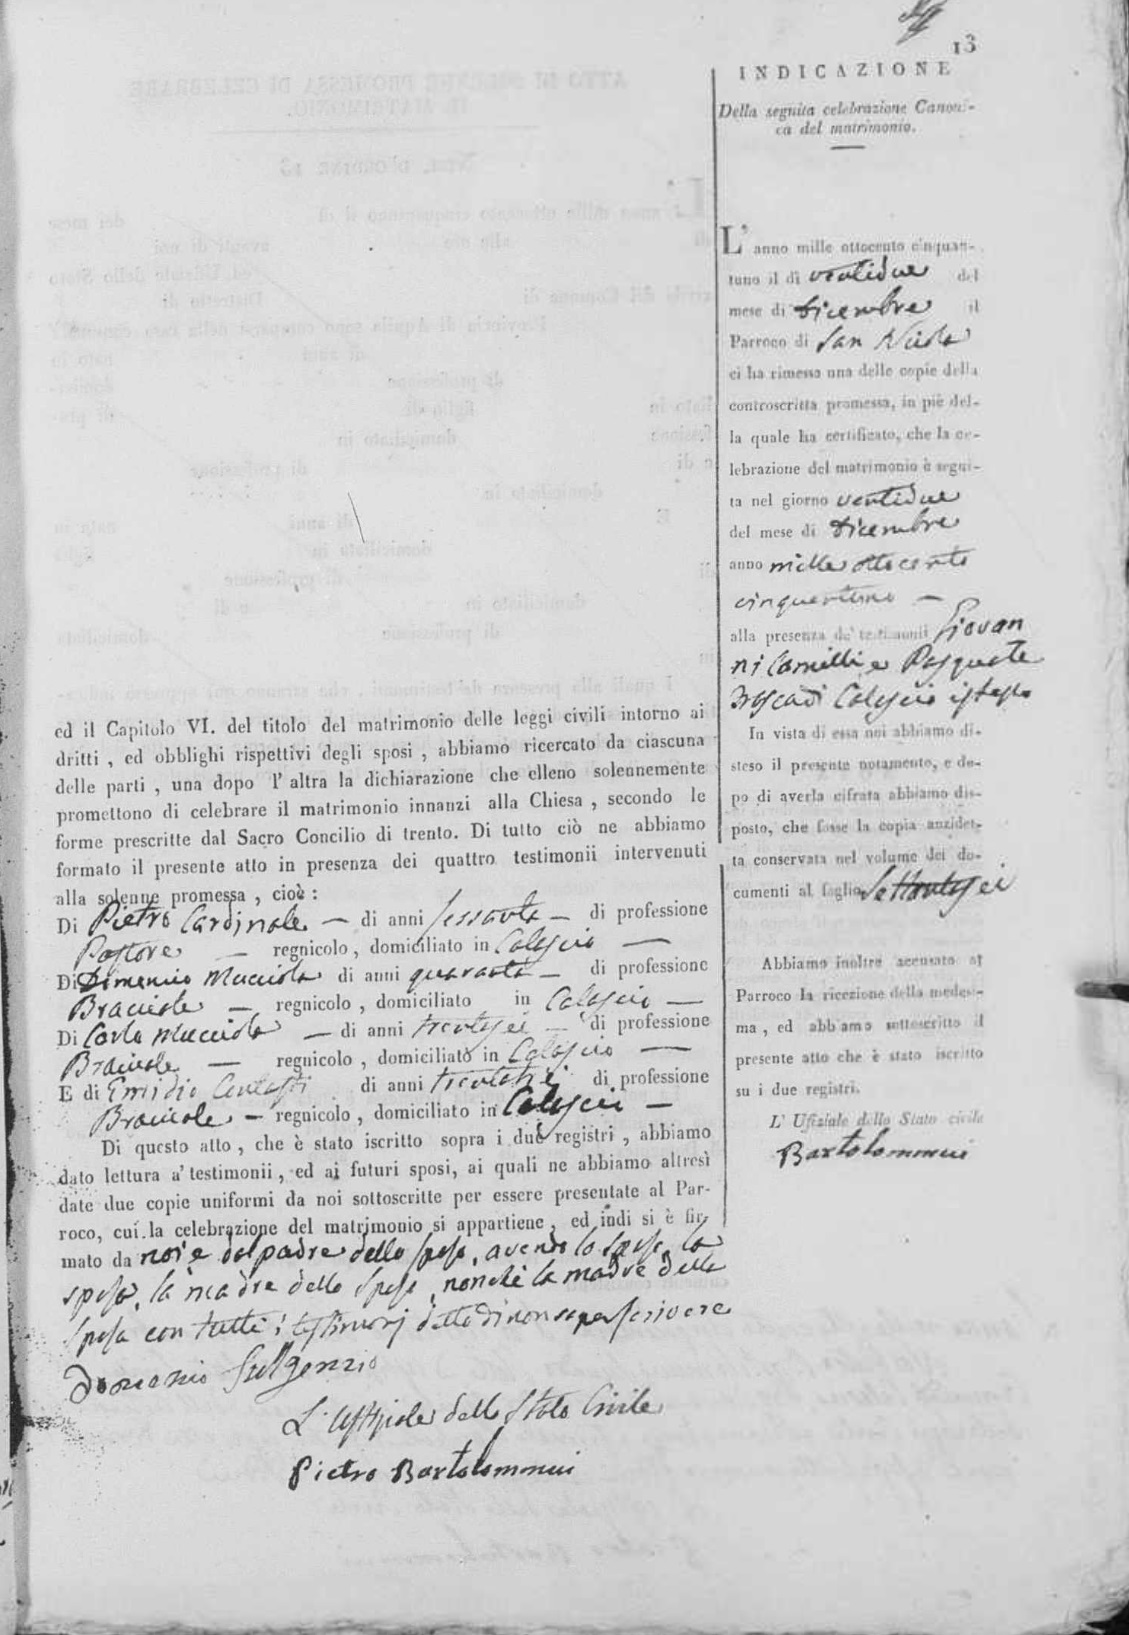 13
INDICAZIONE
Della seguita celebrazione Canoni-
ca del matrimonio.
L' anno mille ottocento cinquan-
tuno il dì ventidue del
mese di Dicembre il
Parroco di San Nicola
ci ha rimessa una delle copie della
controscritta promessa, in piè del-
la quale ha certificato, che la ce-
lebrazione del matrimonio è segui-
ta nel giorno ventidue
del mese di Dicembre
anno mille ottocento
cinquantuno —
alla presenza de' testimonii Giovan
ni Camilli e Pasquale
di Calascio
In vista di essa noi abbiamo di-
steso il presente notamento, e do-
po di averla cifrata abbiamo dis-
posto, che fosse la copia anzidet-
ta conservata nel volume dei do-
cumenti al foglio
Abbiamo inoltre accusato al
Parroco la ricezione della medesi-
ma, ed abbiamo sottoscritto il
presente atto che è stato iscritto
su i due registri.
L' Ufiziale dello Stato civile
Bartolommei
ed il Capitolo VI. del titolo del matrimonio delle leggi civili intorno ai
dritti, ed obblighi rispettivi degli sposi, abbiamo ricercato da ciascuna
delle parti, una dopo l' altra la dichiarazione che elleno solennemente
promettono di celebrare il matrimonio innanzi alla Chiesa, secondo le
forme prescritte dal Sacro Concilio di trento. Di tutto ciò ne abbiamo
formato il presente atto in presenza dei quattro testimonii intervenuti
alla solenne promessa, cioè:
Di Pietro Cardinale — di anni sessanta — di professione
Pastore — regnicolo, domiciliato in Calascio —
Di Domenico Mucciola di anni quaranta — di professione
Bracciale — regnicolo, domiciliato in Calascio —
Di Carlo Mucciola — di anni trentasei — di professione
Bracciale — regnicolo, domiciliato in Calascio —
E di Emidio di anni di professione
Bracciale — regnicolo, domiciliato in Calascio —
Di questo atto, che è stato iscritto sopra i due registri, abbiamo
dato lettura a' testimonii, ed ai futuri sposi, ai quali ne abbiamo altresì
date due copie uniformi da noi sottoscritte per essere presentate al Par-
roco, cui la celebrazione del matrimonio si appartiene, ed indi si è fir-
mato da noi e dal padre dello sposo, avendo lo sposo, la
sposa, la madre dello sposo, nonché la madre della
sposa con tutti i testimonj detto di non saper scrivere
Domenico Fulgenzio
L' Uffiziale dello Stato Civile
Pietro Bartolommei